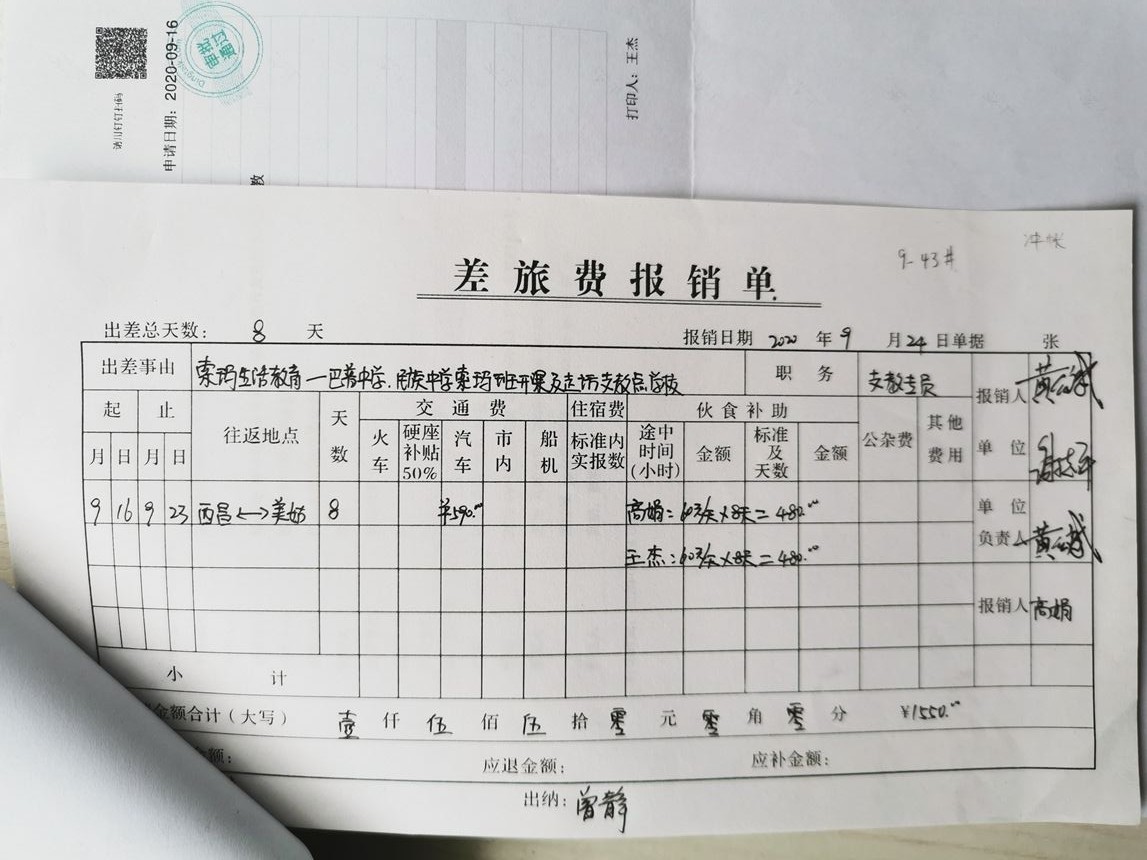 请用钉钉扫码
申请日期：2020-09-16
审批通过
Dingtalk
数
打印人：王杰
冲帐
9-43#
差旅费报销单
出差总天数： 8 天
报销日期 2020 年 9 月 24 日单据 张
出差事由 索玛生活教育—巴普中学、民族中学索玛班开课及走访支教点学校 职务 支教专员
报销人
起 止 往返地点 天数 交通费 住宿费 伙食补助 公杂费 其他费用
月 日 月 日 火车 硬座补贴50% 汽车 市内 船机 标准内实报数 途中时间(小时) 金额 标准及天数 金额
单位
9 16 9 23 西昌<->美姑 8 ¥590.00 高娟：60元/天×8天=480.00
单位负责人
王杰：60元/天×8天=480.00
报销人 高娟
小计
金额合计(大写) 壹 仟 伍 佰 伍 拾 零 元 零 角 零 分 ¥1550.00
额： 应退金额： 应补金额：
出纳：曾静